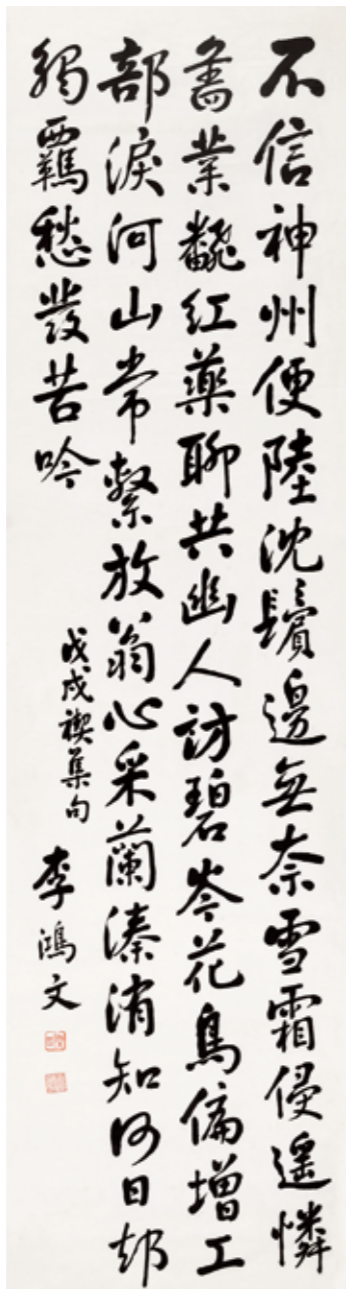 不信神州便陸沈鬢邊無奈雪霜侵遙憐
舊業飜紅藥聊共幽人訪碧岑花鳥偏增工
部淚河山常繫放翁心采蘭溱洧知何日却
觸羈愁發苦吟
戊戌禊集句
李鴻文